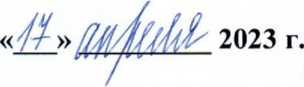 «17» апреля 2023 г.